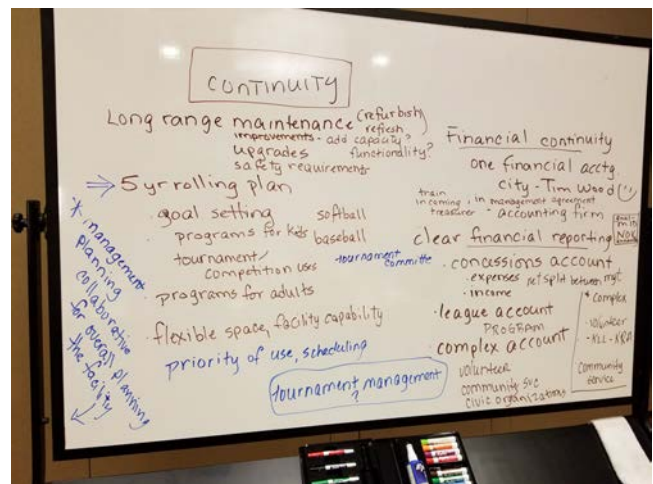 CONTINUITY
Long range maintenance (refurbish)
refresh
improvements - add capacity?
upgrades functionality?
safety requirements
⇒ 5 yr rolling plan
· goal setting softball
· programs for kids baseball
tournament/ tournament
competition uses committe
· programs for adults
· flexible space, facility capability
priority of use, scheduling
tournament management
?
* management
planning
collaborative
for overall planning
the facility
Financial continuity
one financial acctg.
city - Tim Wood
train
incoming, in management agreement
treasurer - accounting firm
clear financial reporting
· concessions account
· expenses net split between mgt
· income
· league account
PROGRAM
· complex account
volunteer
community svc
civic organizations
* complex
· volunteer
community
service